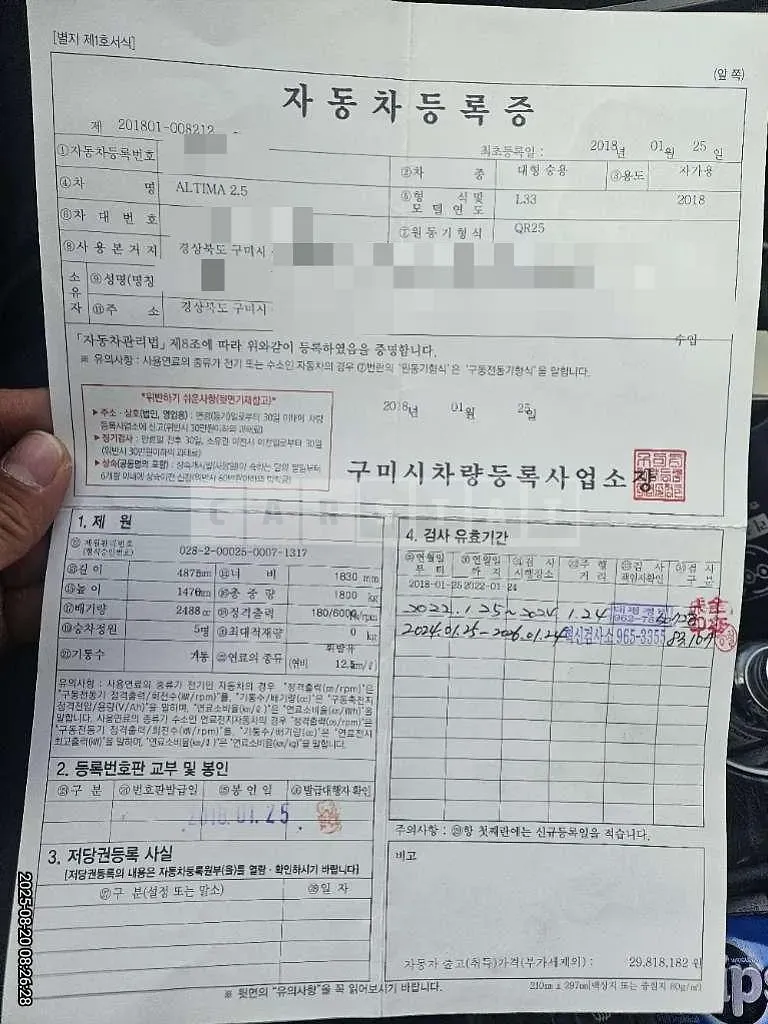 [별지 제1호서식]
(앞 쪽)
자동차등록증
제 201801-008212
최초등록일 : 2018년 01월 25일
①자동차등록번호
②차 종 대형 승용 ③용도 자가용
④차 명 ALTIMA 2.5
⑤형 식 및 모 델 연 도 L33 2018
⑥차 대 번 호
⑦원 동 기 형 식 QR25
⑧사 용 본 거 지 경상북도 구미시
소유자
⑨성명(명칭
⑪주 소 경상북도 구미시
수입
「자동차관리법」 제8조에 따라 위와같이 등록하였음을 증명합니다.
※ 유의사항 : 사용연료의 종류가 전기 또는 수소인 자동차의 경우 ⑦번란의 '원동기형식'은 '구동전동기형식'을 말합니다.
2018년 01월 25일
*위반하기 쉬운사항(뒷면기재참고)*
▶주소·상호(법인, 영업용) : 변경(등기)일로부터 30일 이내에 차량
등록사업소에 신고(위반시 30만원이하의 과태료)
▶정기검사 : 만료일 전후 30일, 소유권 이전시 이전일로부터 30일
(위반시 30만원이하의 과태료)
▶상속(공동명의 포함) : 상속개시일(사망일)이 속하는 달의 말일부터
6개월 이내에 상속이전 신청(위반시 60만원이하의 범칙금)
구미시차량등록사업소장
1. 제 원
⑫ 제원관리번호
(형식승인번호) 028-2-00025-0007-1317
⑬길 이 4875mm ⑭너 비 1830 mm
⑮높 이 1470mm ⑯총 중 량 1800 kg
⑰배기량 2488 cc ⑱정격출력 180/6000 /rpm
⑲승차정원 5명 ⑳최대적재량 0 kg
㉑기통수 기통 ㉒연료의 종류 휘발유 (연비 12.5km/ℓ)
유의사항 : 사용연료의 종류가 전기인 자동차의 경우 "정격출력(ps/rpm)"은
"구동전동기 정격출력/회전수(㎾/rpm)"를, "기통수/배기량(cc)"은 "구동축전지
정격전압/용량(V/Ah)"을 말하며, "연료소비율(km/ℓ)"은 "연료소비율(km/㎾h)"을
말합니다. 사용연료의 종류가 수소인 연료전지자동차의 경우 "정격출력(ps/rpm)"은
"구동전동기 정격출력/회진수(㎾/rpm)"를, "기통수/배기량(cc)"은 "연료전지
최고출력(㎾)"을 말하며, "연료소비율(km/ℓ)"은 "연료소비율(km/kg)"을 말합니다.
2. 등록번호판 교부 및 봉인
㉓구 분 ㉔번호판발급일 ㉕봉 인 일 ㉖발급대행자 확인
2018.01.25.
3. 저당권등록 사실
(저당권등록의 내용은 자동차등록원부(을)를 열람·확인하시기 바랍니다)
㉗구 분(설정 또는 말소) ㉘일 자
4. 검사 유효기간
㉙연월일 부터 ㉚연월일 까지 ㉛검 사 시행장소 ㉜주 행 거 리 ㉝검 사 책임자확인 ㉞검 사 구 분
2018-01-25 2022-01-24
2022.1.25~2024.1.24
2024.01.25-2026.01.24 혁신검사소 965-3355 83,167
주의사항 : ㉙항 첫째란에는 신규등록일을 적습니다.
비고
자동차 출고(취득)가격(부가세제외) : 29,818,182 원
※ 뒷면의 "유의사항"을 꼭 읽어보시기 바랍니다.
210㎜ x 297㎜[백상지 또는 중질지 80g/㎡]
CARSTREE
2025-08-20 08:26:28